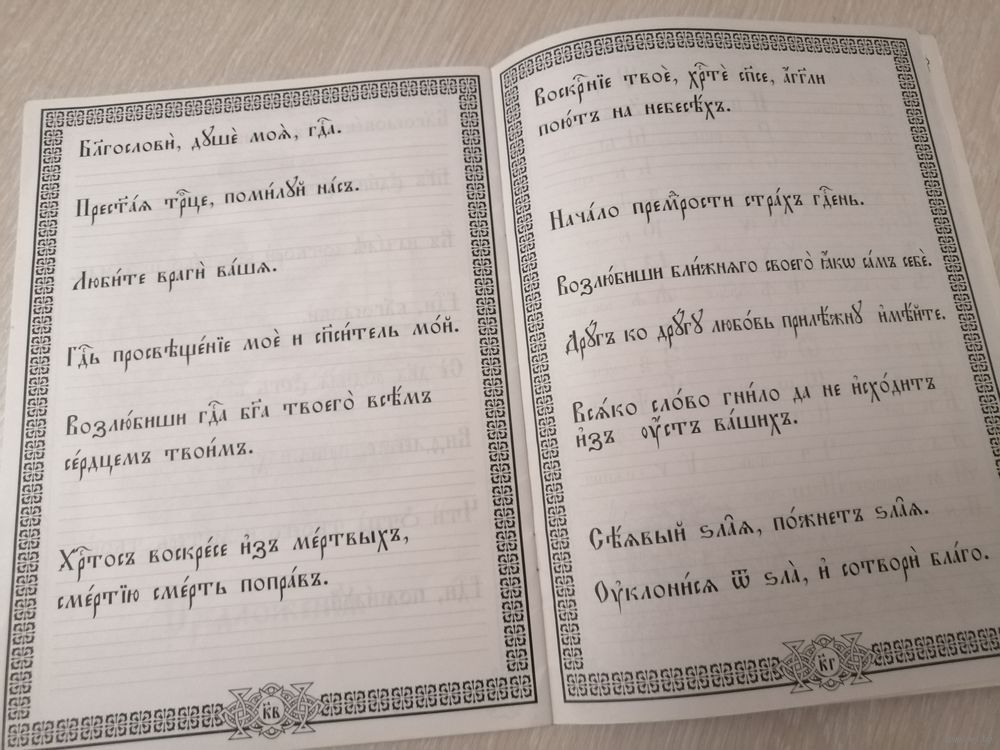 Бл҃гословѝ, дꙋшѐ моѧ̀, гдⷭ҇а.
Прест҃а́ѧ трⷪ҇це, поми́лꙋй на́съ.
Люби́те врагѝ ва́шѧ.
Гдⷭ҇ь просвѣще́нїе моѐ и сп҃си́тель мо́й.
Возлю́биши гдⷭ҇а бг҃а твоего̀ всѣ́мъ
се́рдцемъ твои́мъ.
Хрⷭ҇то́съ воскре́се и҆зъ ме́ртвыхъ,
сме́ртїю сме́рть попра́въ.
к҃в
Воскрⷭ҇нїе твоѐ, хрⷭ҇тѐ сп҃се, а҆́гг҃ли
пою́тъ на небесѣ́хъ.
Нача́ло премⷣрости стра́хъ гдⷭ҇ень.
Возлю́биши бли́жнѧго своего̀ ꙗ҆́кѡ са́мъ себѐ.
Дрꙋ́гъ ко дрꙋ́гꙋ любо́вь прилѣ́жнꙋ и҆мѣ́йте.
Всѧ́ко сло́во гни́ло да не и҆схо́дитъ
и҆зъ оу҆́стъ ва́шихъ.
Сѣ́ѧвый ѕла҄ѧ, по́жнетъ ѕла҄ѧ.
Оу҆клони́сѧ ѿ ѕла̀, и҆ сотворѝ бла́го.
к҃г